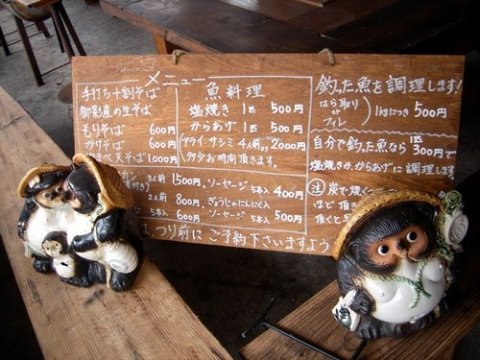 メニュー
手打ち十割そば
御影産の生そば
もりそば 600円
かけそば 600円
天そば 1,000円
魚料理
塩焼き 1匹 500円
からあげ 1匹 500円
フライ・サシミ 4人前 2000円
多少お時間頂きます。
釣た魚を調理します!
はら取り
フィレ
1kgにつき 500円
自分で釣た魚なら 1匹 300円で
塩焼きか、からあげに調理します
3人前 1500円
2人前 800円
5本 600円
ソーセージ 5本入 400円
ぎょうじゃにんにく入
ソーセージ 5本入 500円
注 炭で焼く
ほど頂
頂くと早
つり前にご予約下さいますよう